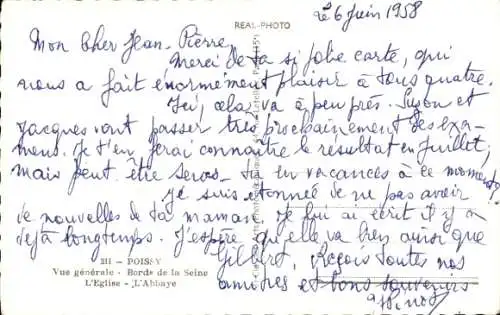 REAL-PHOTO
Le 6 Juin 1958
Mon Cher Jean-Pierre,
Merci de ta si jolie carte, qui
nous a fait énormément plaisir à tous quatre.
Ici, cela va à peu près. Suzon et
Jacques vont passer très prochainement des exa-
mens. Je t'en ferai connaître le résultat en Juillet,
mais peut être seras-tu en vacances à ce moment?
Je suis étonnée de ne pas avoir
de nouvelles de ta maman. Je lui ai écrit il y a
déjà longtemps. J'espère qu'elle va bien ainsi que
Gilbert. Reçois toutes nos
amitiés et bons souvenirs
211 - POISSY
Vue générale - Bords de la Seine
L'Eglise - L'Abbaye